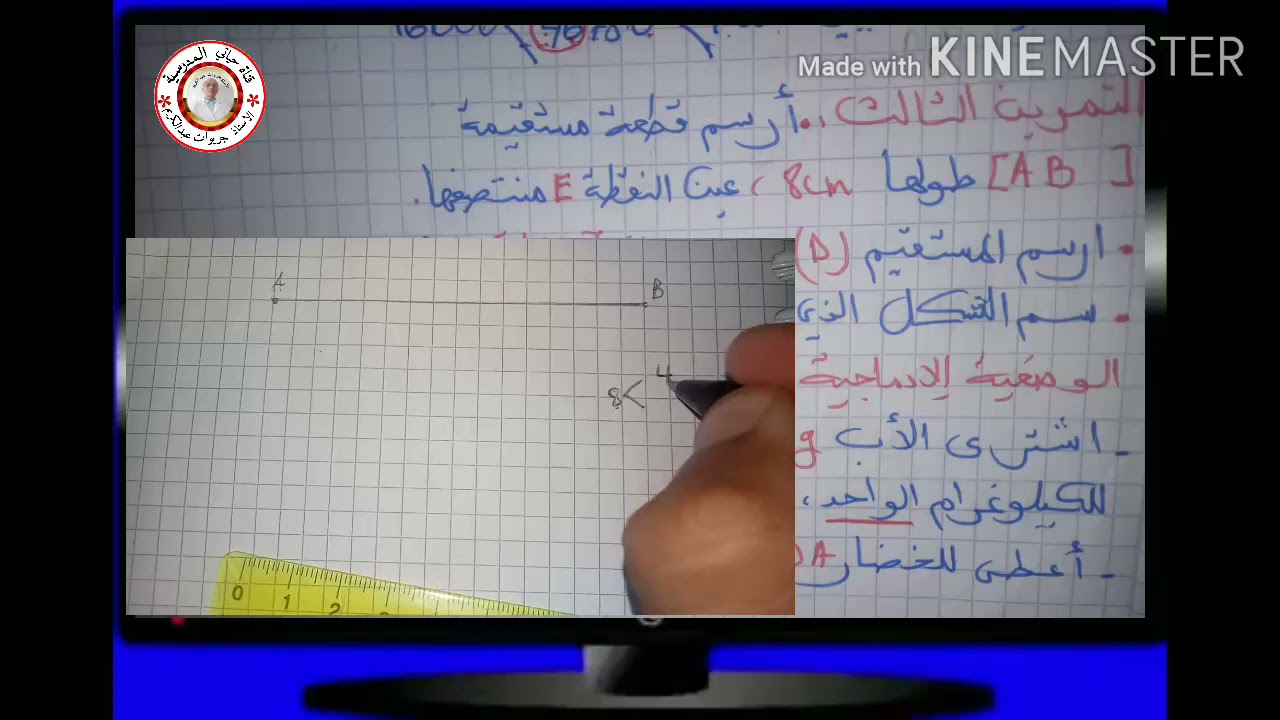 Made with KINEMASTER
قناة حياتي المدرسية
الاستاذ جريوات عبدالكريم
التمرين الثالث : • أرسم قطعة مستقيمة
[AB] طولها 8cm ، عين النقطة E منتصفها .
• ارسم المستقيم (D)
• سم الشكل الذي
الوضعية الادماجية
- اشترى الأب
للكيلوغرام الواحد ،
- أعطى للخضار DA
A B
8 < 4
0 1 2